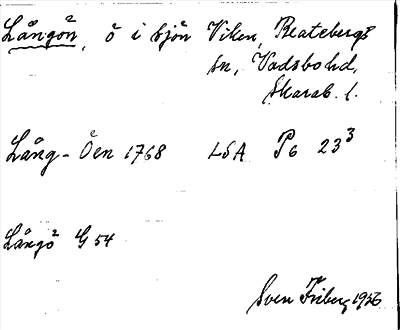 Långön, ö i sjön Viken, Beatebergs
sn, Vadsbo hd,
Skarab. l.
Lång-Öen 1768 LSA P6 23³
Långö G 54
Sven Friberg 1936